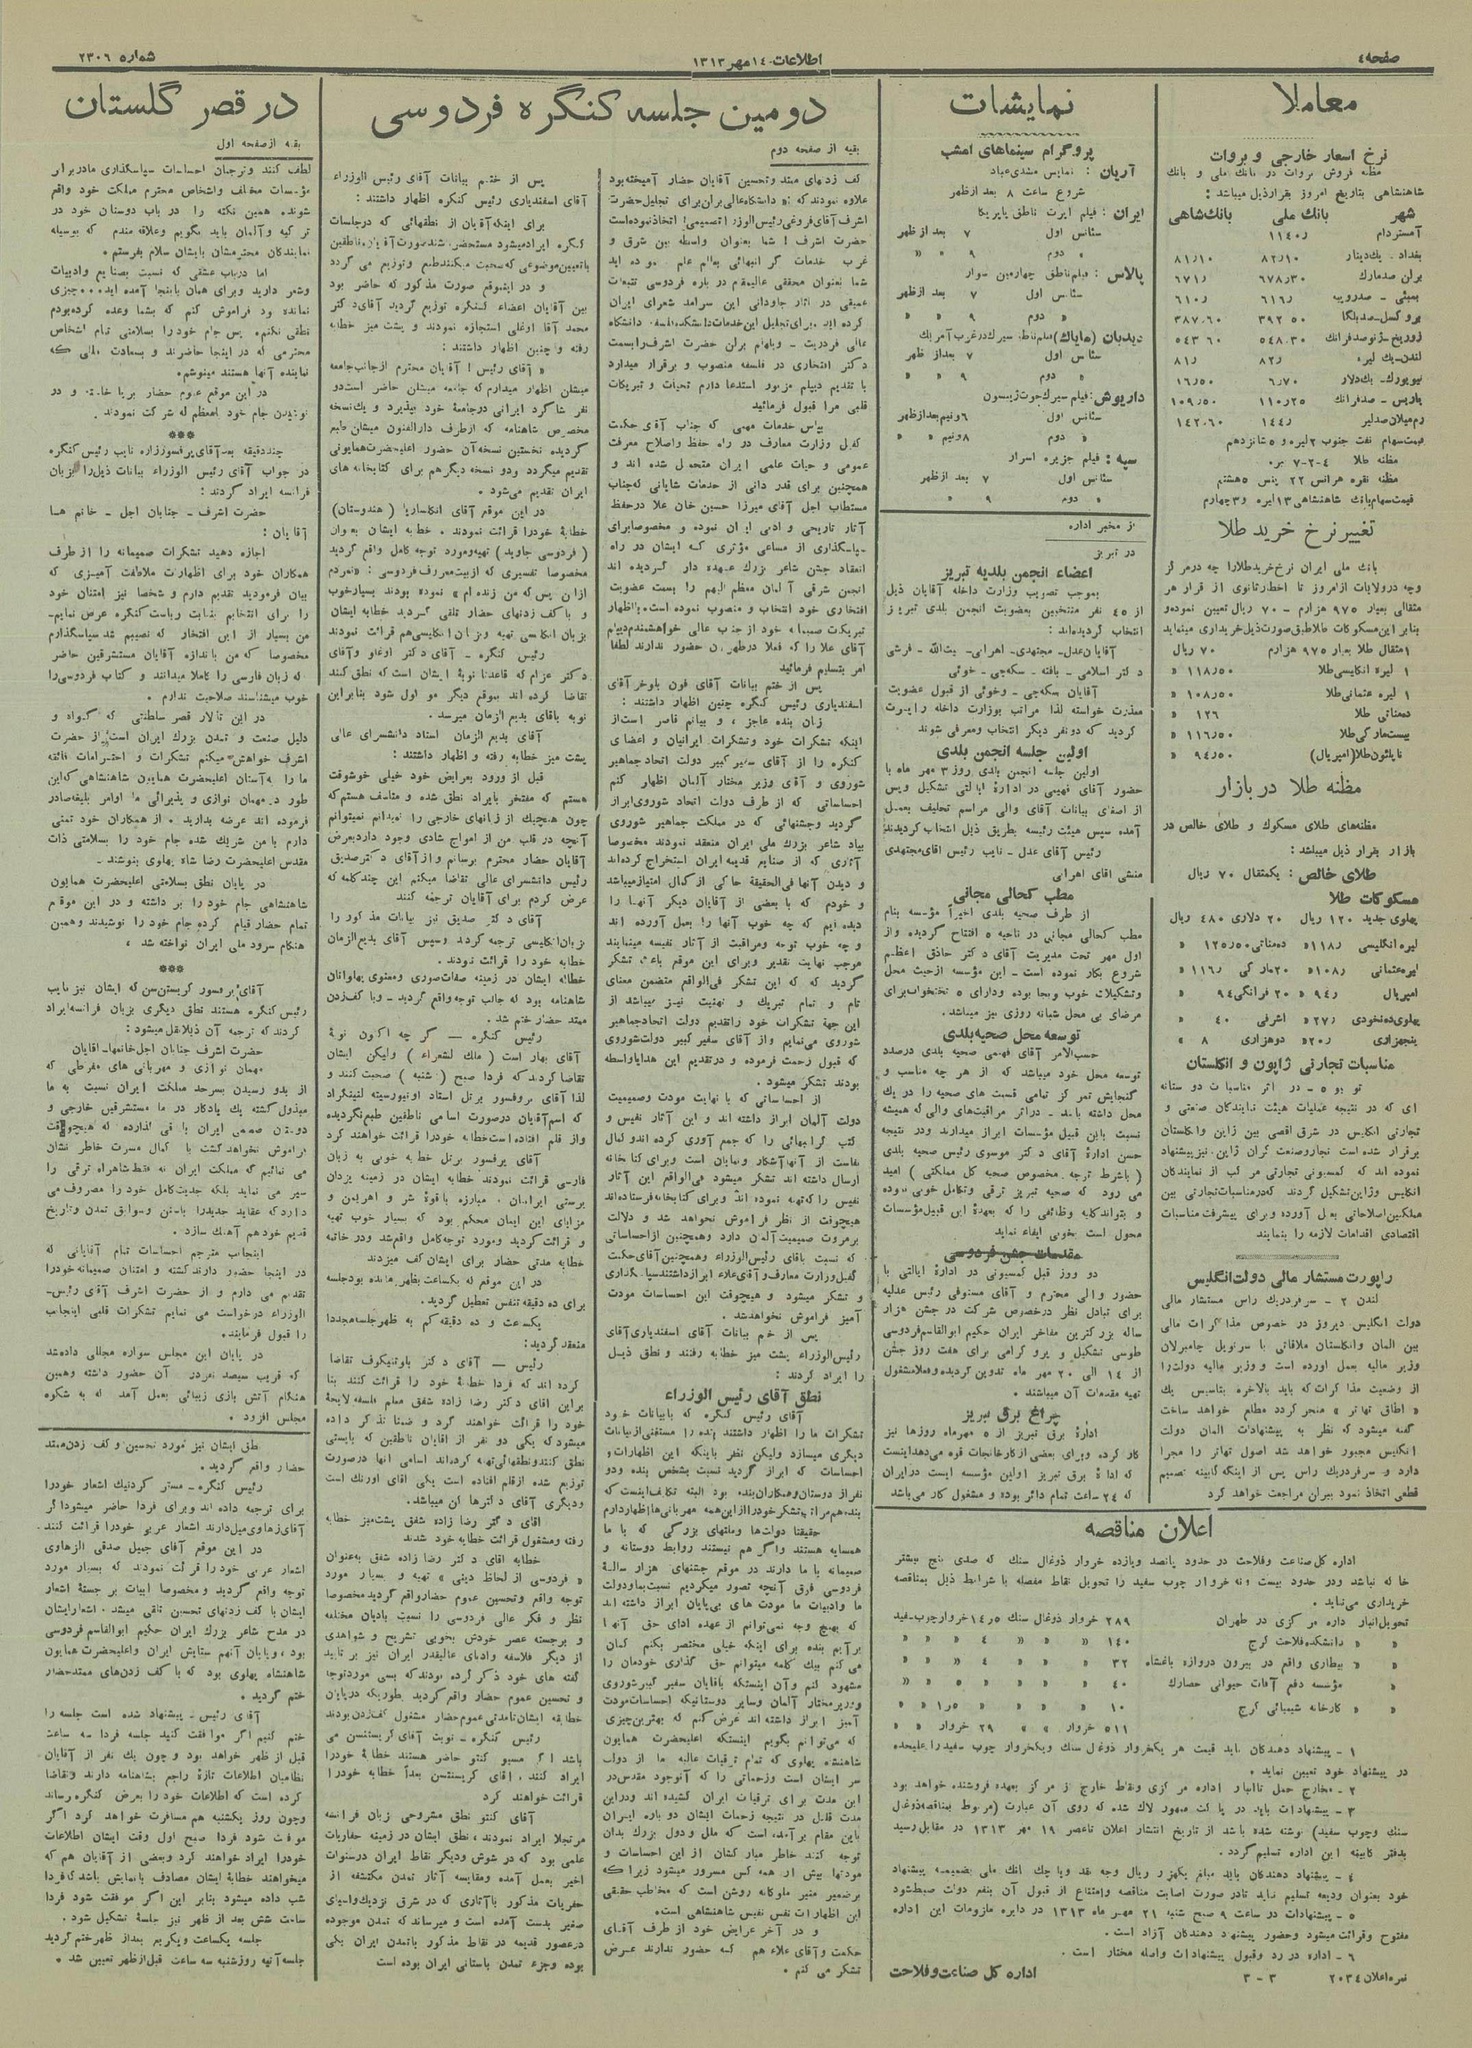 صفحه ٤
اطلاعات-١٤ مهر ١٣١٣
شماره ٢٣٠٦
معاملا
نرخ اسعار خارجی و بروات
مظنه فروش بروات در بانک ملی و بانک
شاهنشاهی بتاریخ امروز بقرار ذیل میباشد:
شهر بانک ملی بانک شاهی
آمستردام ١١٤٠ر
بغداد. یک دینار ٨٢ر١٠ ٨١ر١٠
برلن صدمارک ٦٧٨ر٣٠ ٦٧١ر
بمبئی - صدروپیه ٦١٦ر ٦١٠ر
بروکسل-صدبلگا ٣٩٢ر٥٠ ٣٨٧ر٦٠
زوریخ-ژنو صدفرانک ٥٤٨ر٣٠ ٥٤٣ر٦٠
لندن-یک لیره ٨٢ر ٨١ر
نیویورک-یک دلار ١٦ر٥٠
پاریس - صدفرانک ١١٠ر٢٥ ١٠٩ر٥٠
رم میلان صدلیر ١٤٤ر ١٤٢ر٦٠
قیمت سهام نفت جنوب ٢ لیره و ٥ شانزدهم
مظنه طلا ٤-٢-٧ لیره
مظنه نقره هرانس ٢٢ پنس ٥ هشتم
قیمت سهام بانک شاهنشاهی ١٣ لیره و ٣ چهارم
تغییر نرخ خرید طلا
بانک ملی ایران نرخ خرید طلا را چه در مرکز
وچه در ولایات از امروز تا اخطار ثانوی از قرار هر
مثقالی بعیار ٩٧٥ هزارم - ٧٠ ریال تعیین نموده و
بنابر این مسکوکات طلا طبق صورت ذیل خریداری مینماید
١ مثقال طلا بعیار ٩٧٥ هزارم ٧٠ ریال
١ لیره انگلیسی طلا ١١٨ر٥٠ «
١ لیره عثمانی طلا ١٠٨ر٥٠ «
ده مناتی طلا ١٢٦ «
بیست مارکی طلا ١١٦ر٥٠ «
ناپلئون طلا (امپریال) ٩٤ر٥٠ «
مظنه طلا در بازار
مظنه های طلای مسکوک و طلای خالص در
بازار بقرار ذیل میباشد:
طلای خالص: یکمثقال ٧٠ ریال
مسکوکات طلا
پهلوی جدید ١٢٠ ریال ٢٠ دلاری ٤٨٠ ریال
لیره انگلیسی ١١٨ر « ده مناتی ١٢٥ر٥٠ «
لیره عثمانی ١٠٨ر « ٢٠ مارکی ١١٦ر «
امپریال ٩٤ر « ٢٠ فرانگی ٩٤ «
پهلوی ده نخودی ٢٧ر « اشرفی ٤٠ «
پنجهزاری ٢٠ر « دوهزاری ٨ «
مناسبات تجارتی ژاپون و انگلستان
توکیو ٥ - در اثر مناسبات دوستانه
ای که در نتیجه عملیات هیئت نمایندگان صنعتی و
تجارتی انگلیس در شرق اقصی بین ژاپن وانگلستان
برقرار شده است تجار وصنعت گران ژاپن نیز پیشنهاد
نموده اند که کمسیونی تجارتی مرکب از نمایندگان
انگلیس وژاپن تشکیل گردند که در مناسبات تجارتی بین
مملکتین اصلاحاتی بعمل آورده و برای پیشرفت مناسبات
اقتصادی اقدامات لازمه را بنمایند
راپورت مستشار مالی دولت انگلیس
لندن ٢ - سر فردریک راس مستشار مالی
دولت انگلیس دیروز در خصوص مذاکرات مالی
بین المان وانگلستان ملاقاتی با سرنویل چامبرلان
وزیر مالیه بعمل اورده است و وزیر مالیه دولت را
از وضعیت مذاکرات که باید بالاخره بتاسیس یک
« اطاق تهاتر » منجر گردد مطلع خواهد ساخت
گفته میشود که نظر به پیشنهادات المان دولت
انگلیس مجبور خواهد شد اصول تهاتر را مجرا
دارد و سرفردریک راس پس از اینکه کابینه تصمیم
قطعی اتخاذ نمود ببران مراجعت خواهد کرد
نمایشات
پروگرام سینماهای امشب
آریان: نمایش مشدی عباد
شروع ساعت ٨ بعد ازظهر
ایران: فیلم ایرت ناطق پاپریکا
سئانس اول ٧ بعد از ظهر
« دوم ٩ « «
پالاس: فیلم ناطق چهارمین سوار
سئانس اول ٧ بعد ازظهر
« دوم ٩ « «
سئانس اول ٧ بعد از ظهر
« دوم ٩ « «
داریوش: فیلم سیرک هوت ژیبسون
سئانس اول ٦ ونیم بعد ازظهر
« دوم ٨ ونیم « «
سپه: فیلم جزیره اسرار
سئانس اول ٧ بعد ازظهر
« دوم ٩ «
از مخبر اداره
در تبریز
اعضاء انجمن بلدیه تبریز
بموجب تصویب وزارت داخله آقایان ذیل
از ٤٥ نفر منتخبین بعضویت انجمن بلدی تبریز
انتخاب گردیده اند:
آقایان عدل- مجتهدی- اهرابی- بیت الله - فرشی
دکتر اسلامی - بافته - سکه چی - خوئی
آقایان سکه چی - وخوئی از قبول عضویت
معذرت خواسته لذا مراتب بوزارت داخله راپورت
گردید که دو نفر دیگر انتخاب ومعرفی شوند
اولین جلسه انجمن بلدی
اولین جلسه انجمن بلدی روز ٣ مهر ماه با
حضور آقای فهیمی در ادارۀ ایالتی تشکیل وپس
از اصغای بیانات آقای والی مراسم تحلیف بعمل
آمده سپس هیئت رئیسه بطریق ذیل انتخاب گردیدند
رئیس آقای عدل - نایب رئیس اقای مجتهدی
منشی اقای اهرابی
مطب کحالی مجانی
از طرف صحیه بلدی اخیراً مؤسسه بنام
مطب کحالی مجانی در ناحیه ٥ افتتاح گردیده واز
اول مهر تحت مدیریت آقای دکتر حاذق اعظم
شروع بکار نموده است - این مؤسسه از حیث محل
وتشکیلات خوب وبجا بوده ودارای ٥ تختخواب برای
مرضای بی محل شبانه روزی نیز میباشد.
توسعه محل صحیه بلدی
حسب الامر آقای فهیمی صحیه بلدی درصدد
توسعه محل خود میباشد که از هر چه مناسب و
گنجایش تمرکز تمامی قسمت های صحیه را در یک
محل داشته باشد - دراثر مراقبت های والی که همیشه
نسبت باین قبیل مؤسسات ابراز میدارند ودر نتیجه
حسن ادارۀ آقای دکتر موسوی رئیس صحیه بلدی
(باشرط توجه مخصوص صحیه کل مملکتی) امید
می رود که صحیه تبریز ترقی وتکامل خوبی نموده
و بتواند کلیه وظائفی را که بعهدۀ این قبیل مؤسسات
محول است بخوبی ایفاء نماید
مقدمات جشن فردوسی
دو روز قبل کمسیونی در ادارۀ ایالتی با
حضور والی محترم و آقای مستوفی رئیس عدلیه
برای تبادل نظر درخصوص شرکت در جشن هزار
ساله بزرگترین مفاخر ایران حکیم ابوالقاسم فردوسی
طوسی تشکیل و پروگرامی برای هفت روز جشن
از ١٤ الی ٢٠ مهر ماه تدوین گردیده وفعلا مشغول
تهیه مقدمات آن میباشند.
چراغ برق تبریز
ادارۀ برق تبریز از ٥ مهرماه روزها نیز
کار کرده وبرای بعضی از کارخانجات قوه میدهد اینست
که ادارۀ برق تبریز اولین مؤسسه ایست در ایران
که ٢٤ ساعت تمام دائر بوده و مشغول کار می باشد
اعلان مناقصه
اداره کل صناعت وفلاحت در حدود پانصد ویازده خروار ذوغال سنگ که صدی پنج بیشتر
خاکه نباشد ودر حدود بیست ونه خروار چوب سفید را تحویل نقاط مفصله با شرایط ذیل بمناقصه
خریداری می نماید.
تحویل انبار اداره مرکزی در طهران ٢٨٩ خروار ذوغال سنگ ١٤ر٥ خروار چوب سفید
« « دانشکده فلاحت کرج ١٤٠ « « « ٤ « « «
« « بیطاری واقع در بیرون دروازه باغشاه ٣٢ « « « ٤ « « «
« مؤسسه دفع آفات حیوانی حصارک ٤٠ « « « ٥ « « «
« « کارخانه شیمیائی کرج ١٠ « « « ١ر٥ « « «
٥١١ خروار « « ٢٩ خروار « «
١ - پیشنهاد دهندگان باید قیمت هر یکخروار ذوغال سنگ ویکخروار چوب سفید را علیحده
در پیشنهاد خود تعیین نماید.
٢ - مخارج حمل تا انبار اداره مرکزی ونقاط خارج از مرکز بعهده فروشنده خواهد بود
٣ - پیشنهادات باید در پاکت ممهور لاک شده که روی آن عبارت (مربوط بمناقصه ذوغال
سنگ وچوب سفید) نوشته شده باشد از تاریخ انتشار اعلان تاعصر ١٩ مهر ١٣١٣ در مقابل رسید
بدفتر کابینه این اداره تسلیم گردد.
٤ - پیشنهاد دهندگان باید مبلغ یکهزار ریال وجه نقد ویا چک بانک ملی بضمیمه پیشنهاد
خود بعنوان ودیعه تسلیم نماید تا در صورت اصابت مناقصه وامتناع از قبول آن بنفع دولت ضبط شود
٥ - پیشنهادات در ساعت ٩ صبح شنبه ٢١ مهر ماه ١٣١٣ در دایره ملزومات این اداره
مفتوح وقرائت میشود وحضور پیشنهاد دهندگان آزاد است.
٦ - اداره در رد وقبول پیشنهادات واصله مختار است.
نمره اعلان ٢٠٣٤ ٣ - ٣ اداره کل صناعت وفلاحت
دومین جلسه کنگره فردوسی
بقیه از صفحه دوم
کف زدهای ممتد وتحسین آقایان حضار آمیخته بود
علاوه نمودند که: « دانشگاه عالی برلن برای تجلیل حضرت
اشرف آقای فروغی رئیس الوزراء تصمیمی اتخاذ نموده است
حضرت اشرف! شما بعنوان واسطه بین شرق و
غرب خدمات گرانبهائی بعالم علم نموده اید
شما بعنوان محققی عالیمقام در باره فردوسی تتبعات
عمیقی در آثار جاودانی این سرآمد شعرای ایران
کرده اید. برای تجلیل این خدمات دانشکده فلسفه دانشگاه
عالی فردریک - ویلهلم برلن حضرت اشرف را بسمت
دکتر افتخاری در فلسفه منصوب و برقرار میدارد
با تقدیم دیپلم مزبور استدعا دارم تحیات و تبریکات
قلبی مرا قبول فرمائید
بپاس خدمات مهمی که جناب آقای حکمت
کفیل وزارت معارف در راه حفظ واصلاح معرفت
عمومی و حیات علمی ایران متحمل شده اند و
همچنین برای قدر دانی از خدمات شایانی که جناب
مستطاب اجل آقای میرزا حسین خان علا در حفظ
آثار تاریخی و ادبی ایران نموده و مخصوصا برای
سپاسگذاری از مساعی مؤثری که ایشان در راه
انعقاد جشن شاعر بزرگ عهده دار گردیده اند
انجمن شرقی آلمان معظم الیهم را بسمت عضویت
افتخاری خود انتخاب و منصوب نموده است با اظهار
تبریکات صمیمانه خود از جناب عالی خواهشمندم دیپلم
آقای علا را که فعلا در طهران حضور ندارند لطفا
امر بتسلیم فرمائید
پس از ختم بیانات آقای فون بلوخر آقای
اسفندیاری رئیس کنگره چنین اظهار داشتند:
زبان بنده عاجز، و بیانم قاصر است از
اینکه تشکرات خود وتشکرات ایرانیان و اعضای
کنگره را از آقای سفیر کبیر دولت اتحاد جماهیر
شوروی و آقای وزیر مختار آلمان اظهار کنم
احساساتی که از طرف دولت اتحاد شوروی ابراز
گردید وجشنهائی که در مملکت جماهیر شوروی
بیاد شاعر بزرگ ملی ایران منعقد نمودند مخصوصا
آثاری که از صنایع قدیمه ایران استخراج کرده اند
و دیدن آنها فی الحقیقة حاکی از کمال امتیاز میباشد
و خودم که با بعضی از آقایان دیگر آنها را
دیده ایم که چه خوب آنها را بعمل آورده اند
و چه خوب توجه ومراقبت از آثار نفیسه مینمایند
موجب نهایت تقدیر وبرای این موقع باعث تشکر
گردید که این تشکر فی الواقع متضمن معنای
تام و تمام تبریک و تهنیت نیز میباشد از
این جهة تشکرات خود را تقدیم دولت اتحاد جماهیر
شوروی می نمایم و از آقای سفیر کبیر دولت شوروی
که قبول زحمت فرموده و در تقدیم این هدایا واسطه
بودند تشکر میشود.
از احساساتی که با نهایت مودت وصمیمیت
دولت آلمان ابراز داشته اند و این آثار نفیس و
کتب گرانبهائی را که جمع آوری کرده اند و کمال
نفاست از آنها آشکار ونمایان است وبرای کتابخانه
ارسال داشته اند تشکر میشود فی الواقع این آثار
نفیس را که تهیه نموده اند وبرای کتابخانه فرستاده اند
هیچوقت از نظر فراموش نخواهد شد و دلالت
برمروت صمیمیت آلمان دارد وهمچنین از احساساتی
که نسبت باقای رئیس الوزراء وهمچنین آقای حکمت
کفیل وزارت معارف و آقای علاء ابراز داشتند سپاسگذاری
و تشکر میشود و هیچوقت این احساسات مودت
آمیز فراموش نخواهد شد.
پس از ختم بیانات آقای اسفندیاری آقای
رئیس الوزراء پشت میز خطابه رفتند و نطق ذیل
را ایراد کردند:
نطق آقای رئیس الوزراء
آقای رئیس کنگره که بابیانات خود
تشکرات ما را اظهار داشتند بنده را مستغنی از بیانات
دیگری میسازد ولیکن نظر باینکه این اظهارات و
احساسات که ابراز گردید نسبت بشخص بنده ودو
نفر از دوستان وهمکاران بنده بود البته تکلیف اینست که
بنده هم مراتب تشکر خود را از این همه مهربانی ها اظهار دارم
حقیقتا دولت ها وملتهای بزرگی که با ما
همسایه هستند واگر هم نیستند روابط دوستانه و
صمیمانه با ما دارند در موقع جشنهای هزار سالۀ
فردوسی فوق آنچه تصور میکردیم نسبت بما ودولت
ما وادبیات ما مودت های بی پایان ابراز داشته اند
که بهیچ وجه نمی توانم از عهده ادای حق آنها
برآیم بنده برای اینکه خیلی مختصر بکنم گمان
می کنم بیک کلمه میتوانم حق گذاری خودمان را
مشهود کنم وآن اینستکه باقایان سفیر کبیر شوروی
ووزیر مختار آلمان وسایر دوستانیکه احساسات مودت
آمیز ابراز داشته اند عرض کنم که بهترین چیزی
که می توانم بگویم اینستکه اعلیحضرت همایون
شاهنشاه پهلوی که تمام ترقیات عالیه ما از دولت
سر ایشان است وزحماتی را که آنوجود مقدس در
این مدت برای ترقیات ایران کشیده اند ودر این
مدت قلیل در نتیجه زحمات ایشان دوباره ایران
باین مقام برآمده است که ملل ودول بزرگ بدان
توجه کنند خاطر مبارکشان از این احساسات و
مودتها بیش از همه کس مسرور میشود زیرا که
برضمیر منیر ملوکانه روشن است که مخاطب حقیقی
این اظهارات نفس نفیس شاهنشاهی است.
و در آخر عرایض خود از طرف آقای
حکمت و آقای علاء هم که حضور ندارند عرض
تشکر می کنم.
پس از ختم بیانات آقای رئیس الوزراء
آقای اسفندیاری رئیس کنگره اظهار داشتند:
برای اینکه آقایان از نطقهائی که در جلسات
کنگره ایراد میشود مستحضر شوند صورت آقایان ناطقین
با تعیین موضوعی که صحبت میکنند طبع و توزیع می گردد
و در اینموقع صورت مذکور که حاضر بود
بین آقایان اعضاء کنگره توزیع گردید آقای دکتر
محمد آقا اوغلی استجازه نمودند و پشت میز خطابه
رفته و چنین اظهار داشتند:
« آقای رئیس! آقایان محترم از جانب جامعه
میشیگن اظهار میدارم که جامعه میشیگن حاضر است دو
نفر شاگرد ایرانی در جامعۀ خود بپذیرد و یک نسخه
مخصوص شاهنامه که از طرف دارالفنون میشیگن طبع
گردیده نخستین نسخه آن حضور اعلیحضرت همایونی
تقدیم میگردد ودو نسخه دیگر هم برای کتابخانه های
ایران تقدیم می شود.
در این موقع آقای انکلساریا (هندوستان)
خطابۀ خود را قرائت نمودند. خطابه ایشان بعنوان
(فردوسی جاوید) تهیه و مورد توجه کامل واقع گردید
مخصوصا تفسیری که از بیت معروف فردوسی: « نمیرم
از این پس که من زنده ام » نموده بودند بسیار خوب
و با کف زدنهای حضار تلقی گردید خطابه ایشان
بزبان انگلیسی تهیه و بزبان انگلیسی هم قرائت نمودند
رئیس کنگره - آقای دکتر اوغلو و آقای
دکتر عزام که قاعدتا نوبۀ ایشان است که نطق کنند
تقاضا کرده اند بموقع دیگر موکول شود بنابراین
نوبه باقای بدیع الزمان میرسد.
آقای بدیع الزمان استاد دانشسرای عالی
پشت میز خطابه رفته و اظهار داشتند:
قبل از ورود بعرایض خود خیلی خوشوقت
هستم که مفتخر بایراد نطق شده و متاسف هستم که
چون هیچیک از زبانهای خارجی را نمیدانم نمیتوانم
آنچه در قلب من از امواج شادی وجود دارد بعرض
آقایان حضار محترم برسانم و از آقای دکتر صدیق
رئیس دانشسرای عالی تقاضا میکنم این چند کلمه که
عرض کردم برای آقایان ترجمه کنند
آقای دکتر صدیق نیز بیانات مذکور را
بزبان انگلیسی ترجمه کردند وسپس آقای بدیع الزمان
خطابه خود را قرائت نمودند.
خطابه ایشان در زمینه صفات صوری ومعنوی پهلوانان
شاهنامه بود که جالب توجه واقع گردید - وبا کف زدن
ممتد حضار ختم شد.
رئیس کنگره - گر چه اکنون نوبۀ
آقای بهار است (ملک الشعراء) ولیکن ایشان
تقاضا کردند که فردا صبح (شنبه) صحبت کنند و
لذا آقای پروفسور برتل استاد اونیورسیته لنینگراد
که اسم آقایان در صورت اسامی ناطقین طبع نگردیده
واز قلم افتاده است خطابه خود را قرائت خواهند کرد
آقای پرفسور برتل خطابه خوبی به زبان
فارسی قرائت نمودند خطابه ایشان در زمینه یزدان
پرستی ایرانیان. مبارزه باقوۀ شر و اهریمن و
مزایای این ایمان محکم بود که بسیار خوب تهیه
و قرائت گردید ومورد توجه کامل واقع شد ودر خاتمه
خطابه مدتی حضار برای ایشان کف میزدند
در این موقع که یکساعت بظهر مانده بود جلسه
برای ده دقیقه تنفس تعطیل گردید.
یکساعت و ده دقیقه کم به ظهر جلسه مجددا
منعقد گردید:
رئیس - آقای دکتر باوتنیکوف تقاضا
کرده اند که فردا خطابۀ خود را قرائت کنند بنا
براین اقای دکتر رضا زاده شفق معلم فلسفه لایحۀ
خود را قرائت خواهند کرد و ضمنا تذکر داده
میشود که یکی دو نفر از آقایان ناطقین که بایستی
نطق کنند ونطقهائی تهیه کرده اند اسامی آنها در صورت
توزیع شده از قلم افتاده است یکی آقای اورنگ است
ودیگری آقای دکتر ها ان میباشد.
اقای دکتر رضا زاده شفق پشت میز خطابه
رفته ومشغول قرائت خطابه خود شدند
خطابه اقای دکتر رضا زاده شفق به عنوان
« فردوسی از لحاظ دینی » تهیه و بسیار مورد
توجه واقع وتحسین عموم حضار واقع گردید مخصوصا
نظر و فکر عالی فردوسی را نسبت بادیان مختلفه
و برجسته عصر خودش بخوبی تشریح و شواهدی
از دیگر فلاسفه وادبای عالیقدر ایران نیز بر تایید
گفته های خود ذکر کرده بودند که بسی مورد توجه
و تحسین عموم حضار واقع گردید بطوریکه در پایان
خطابه ایشان تا مدتی عموم حضار مشغول کف زدن بودند
رئیس کنگره - نوبت آقای کریستنسن می
باشد اگر مسیو کنتو حاضر هستند خطابۀ خود را
ایراد کنند. اقای کریستنسن بعداً خطابه خود را
قرائت خواهند کرد
آقای کنتو نطق مشروحی زبان فرانسه
مرتجلا ایراد نمودند، نطق ایشان در زمینه حفاریات
علمی بود که در شوش ودیگر نقاط ایران در سنوات
اخیر بعمل آمده ومقایسه آثار تمدن مکتشفه از
حفریات مذکور باآثاری که در شرق نزدیک واسیای
صغیر بدست آمده است و میرساند که تمدن موجوده
در عصور قدیمه در نقاط مذکور باتمدن ایران یکی
بوده وجزء تمدن باستانی ایران بوده است
در قصر گلستان
بقیه از صفحه اول
لطف کنند وترجمان احساسات سپاسگذاری مادر برابر
مؤسسات مختلف واشخاص محترم مملکت خود واقع
شوند. همین نکته را در باب دوستان خود در
ترکیه و آلمان باید بگویم وعلاقه مندم که بوسیله
نمایندگان محترمشان بایشان سلام بفرستم.
اما درباب عشقی که نسبت بصنایع وادبیات
وشعر دارید وبرای همان باینجا آمده اید... چیزی
نمانده بود فراموش کنم که بشما وعده کرده بودم
نطقی نکنم. پس جام خود را بسلامتی تمام اشخاص
محترمی که در اینجا حاضرند و بسعادت مللی که
نماینده آنها هستند مینوشم.
در این موقع عموم حضار برپا خاستند و در
نوشیدن جام خود بامعظم له شرکت نمودند.
***
چند دقیقه بعد آقای پرفسور زاره نایب رئیس کنگره
در جواب آقای رئیس الوزراء بیانات ذیل را بزبان
فرانسه ایراد کردند:
حضرت اشرف - جنابان اجل - خانم ها
آقایان:
اجازه دهید تشکرات صمیمانه را از طرف
همکاران خود برای اظهارات ملاطفت آمیزی که
بیان فرمودید تقدیم دارم و شخصا نیز امتنان خود
را برای انتخابم بنیابت ریاست کنگره عرض نمایم-
من بسیار از این افتخار که نصیبم شد سپاسگذارم
مخصوصا که من باندازه آقایان مستشرقین حاضر
که زبان فارسی را کاملا میدانند و کتاب فردوسی را
خوب میشناسند صلاحیت ندارم.
در این تالار قصر سلطنتی که گواه و
دلیل صنعت و تمدن بزرگ ایران است از حضرت
اشرف خواهش میکنم تشکرات و احترامات فائقه
ما را به آستان اعلیحضرت همایون شاهنشاهی که این
طور در مهمان نوازی و پذیرائی ما اوامر بلیغه صادر
فرموده اند عرضه بدارید. از همکاران خود تمنی
دارم با من شریک شده جام خود را بسلامتی ذات
مقدس اعلیحضرت رضا شاه پهلوی بنوشند.
در پایان نطق بسلامتی اعلیحضرت همایون
شاهنشاهی جام خود را بر داشته و در این موقع
تمام حضار قیام کرده جام خود را نوشیدند وهمین
هنگام سرود ملی ایران نواخته شد.
***
آقای پرفسور کریستن سن که ایشان نیز نایب
رئیس کنگره هستند نطق دیگری بزبان فرانسه ایراد
کردند که ترجمه آن ذیلا نقل میشود:
حضرت اشرف جنابان اجل خانمها-آقایان
مهمان نوازی و مهربانی های مفرطی که
از بدو رسیدن بسرحد مملکت ایران نسبت به ما
مبذول گشته یک یادگار در ما مستشرقین خارجی و
دوستان صمیمی ایران باقی گذارده که هیچوقت
فراموش نخواهد گشت با کمال مسرت خاطر نشان
می نمائیم که مملکت ایران نه فقط شاهراه ترقی را
سیر می نماید بلکه جدیت کامل خود را مصروف می
دارد که عقاید جدید را باسنن وسوابق تمدن وتاریخ
قدیم خود هم آهنگ سازد.
اینجانب مترجم احساسات تمام آقایانی که
در اینجا حضور دارند گشته و امتنان صمیمانه خود را
تقدیم می دارم و از حضرت اشرف آقای رئیس-
الوزراء درخواست می نمایم تشکرات قلبی اینجانب
را قبول فرمایند.
در پایان این مجلس سواره مجللی داده شد
که قریب سیصد نفر در آن حضور داشته وهمین
هنگام آتش بازی زیبائی بعمل آمد که به شکوه
مجلس افزود.
نطق ایشان نیز مورد تحسین و کف زدن ممتد
حضار واقع گردید.
رئیس کنگره - مستر درنک اشعار خود را
برای ترجمه داده اند وبرای فردا حاضر میشود اگر
آقای زهاوی میل دارند اشعار عربی خود را قرائت کنند.
در این موقع آقای جمیل صدقی الزهاوی
اشعار عربی خود را قرائت نمودند که بسیار مورد
توجه واقع گردید و مخصوصا ابیات برجستۀ اشعار
ایشان با کف زدنهای تحسین تلقی میشد. اشعار ایشان
در مدح شاعر بزرگ ایران حکیم ابوالقاسم فردوسی
بود، وپایان آنهم ستایش ایران و اعلیحضرت همایون
شاهنشاه پهلوی بود که با کف زدن های ممتد حضار
ختم گردید.
آقای رئیس - پیشنهاد شده است جلسه را
ختم کنیم اگر موافقت کنید جلسه فردا سه ساعت
قبل از ظهر خواهد بود و چون یک نفر از آقایان
نظامیان اطلاعات تازۀ راجع بشاهنامه دارند وتقاضا
کرده است که اطلاعات خود را بعرض کنگره رساند
وچون روز یکشنبه هم مسافرت خواهد کرد اگر
موافقت شود فردا صبح اول وقت ایشان اطلاعات
خود را ایراد خواهند کرد وبعضی از آقایان هم که
میخواهند خطابۀ ایشان مصادف بانمایش باشد که فردا
شب داده میشود بنابر این اگر موافقت شود فردا
ساعت شش بعد از ظهر نیز جلسۀ تشکیل شود.
جلسه یکساعت ویکربع بعد از ظهر ختم گردید
جلسه آتیه روز شنبه سه ساعت قبل از ظهر تعیین شد.